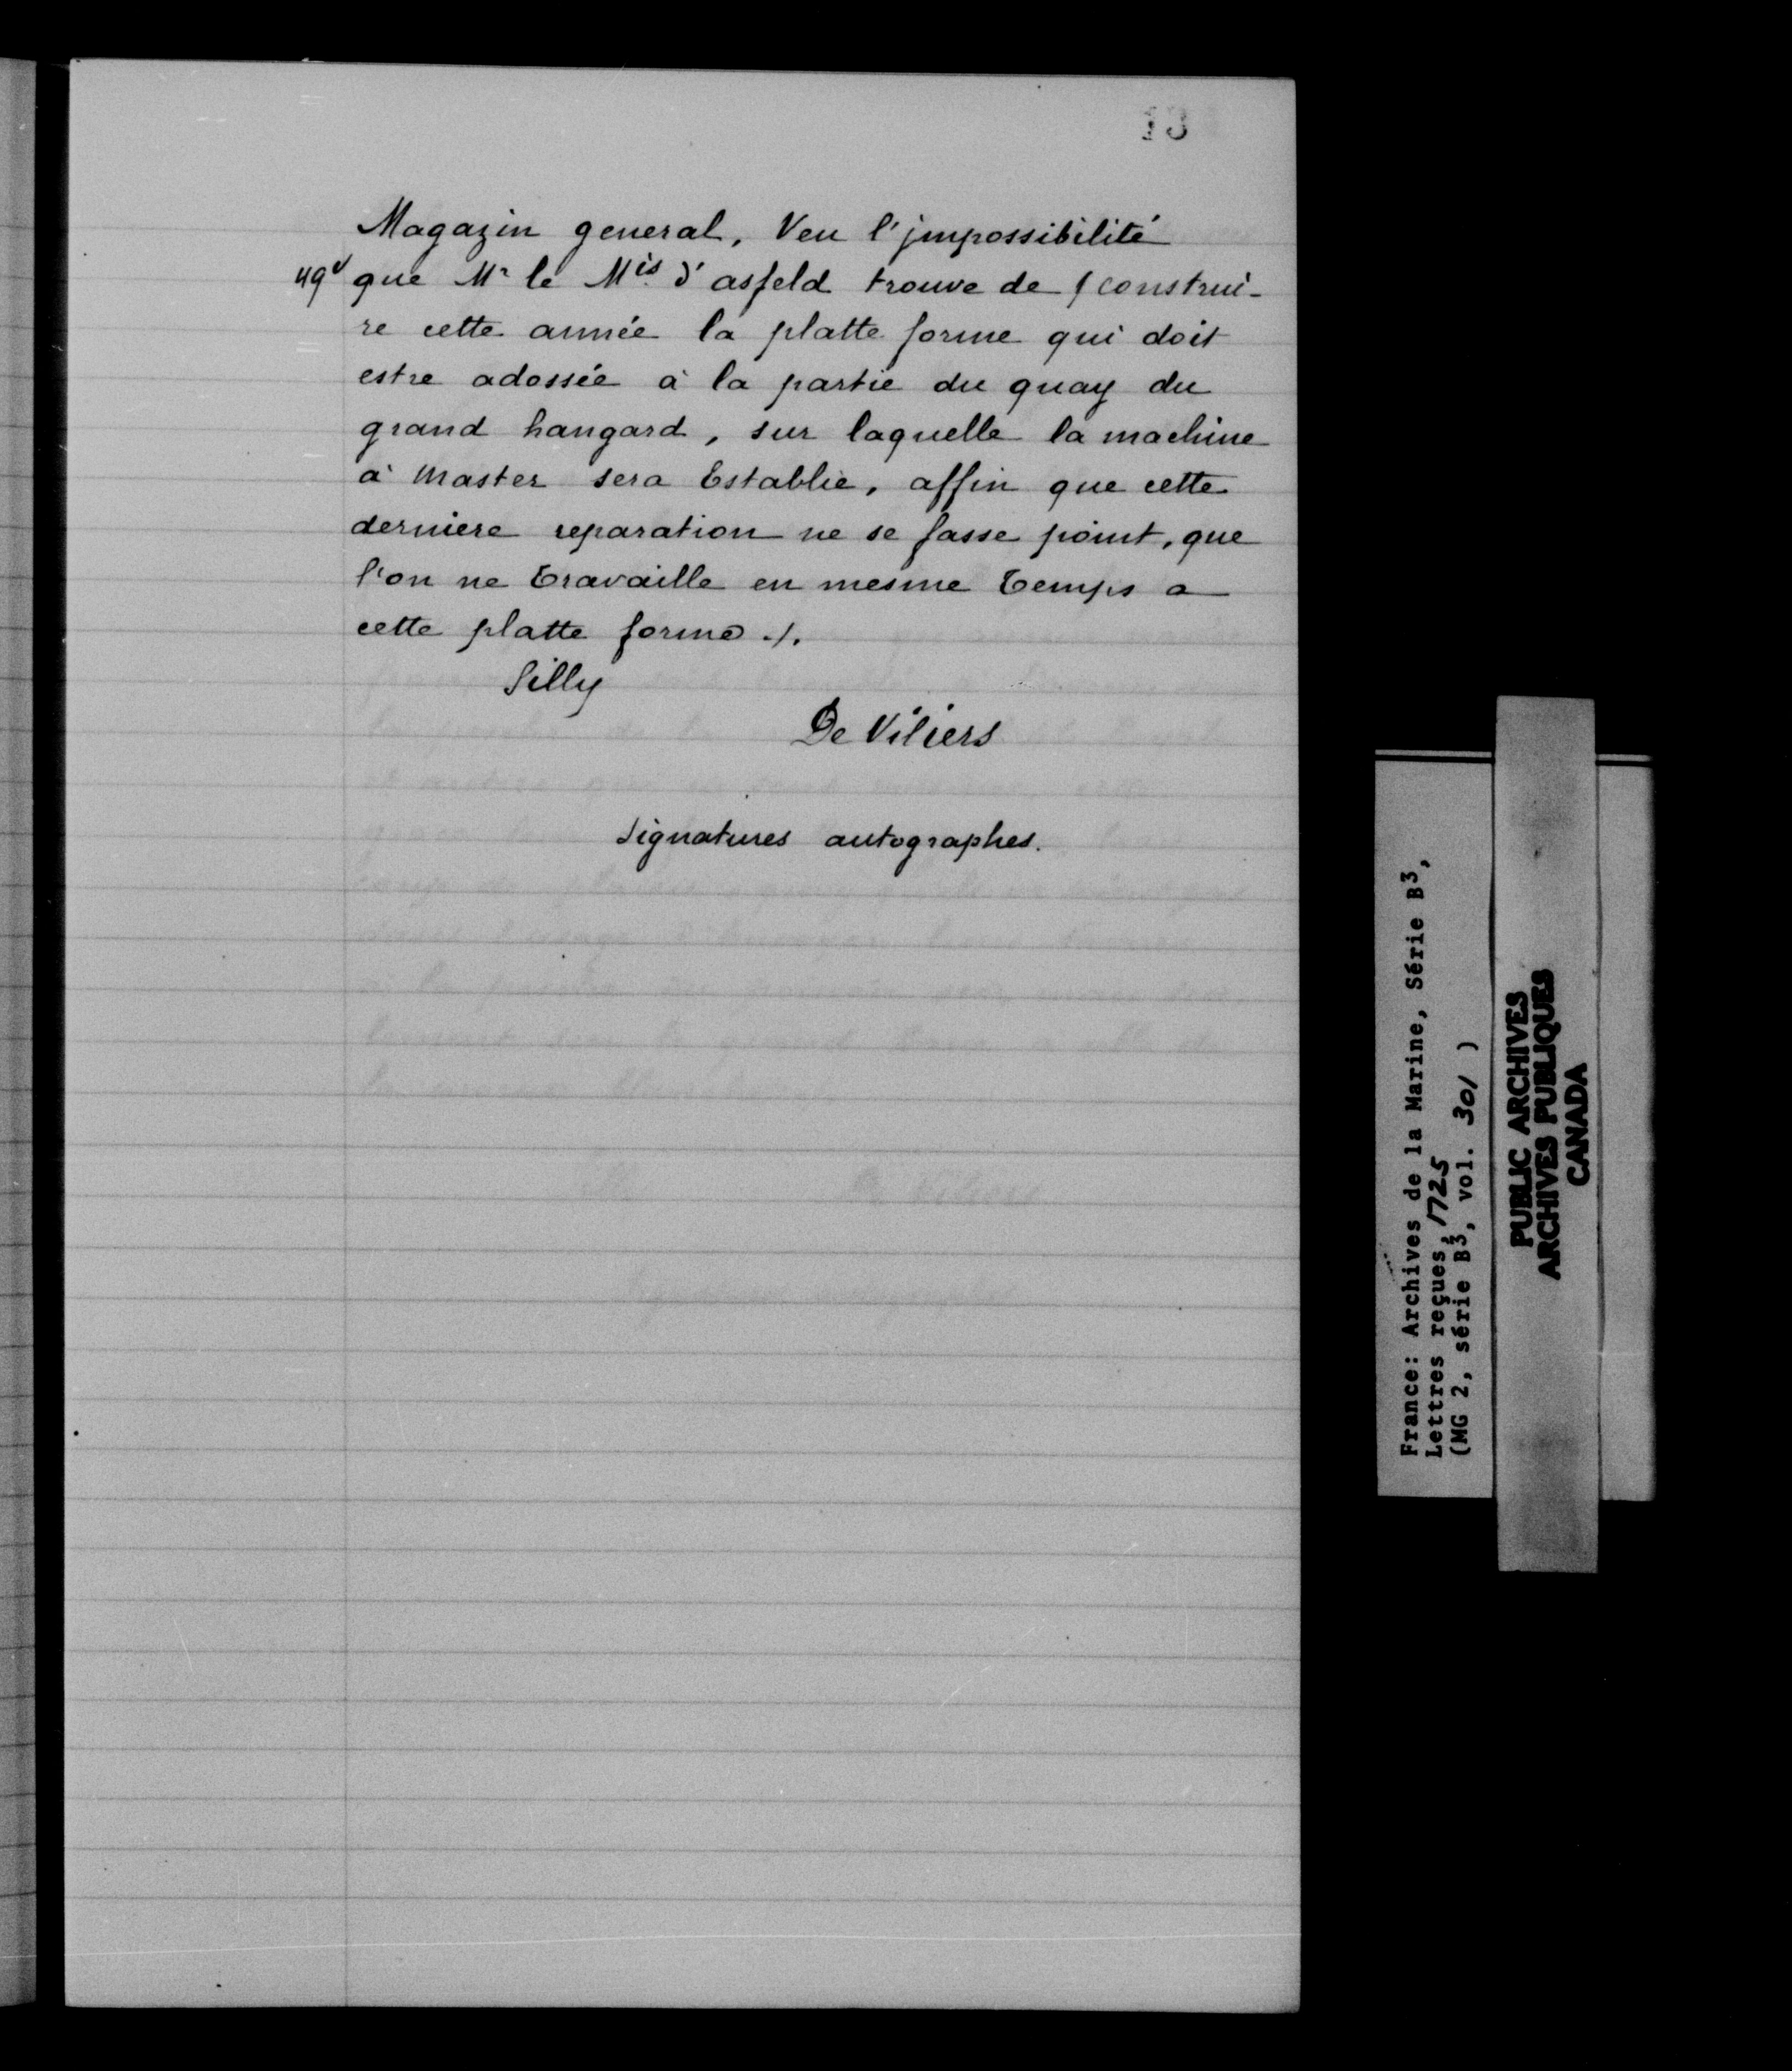 13
Magazin general, Veu l'jmpossibilité
49v que Mr le Mis d'asfeld trouve de / construi-
re cette année la platte forme qui doit
estre adossée à la partie du quay du
grand hangard, sur laquelle la machine
à Master sera Establie, affin que cette
derniere reparation ne se fasse point, que
l'on ne travaille en mesme temps a
cette platte forme ./.
Silly
De Viliers
Signatures autographes.
France: Archives de la Marine, Série B3,
Lettres reçues, 1725
(MG 2, série B3, vol. 301 )
PUBLIC ARCHIVES
ARCHIVES PUBLIQUES
CANADA